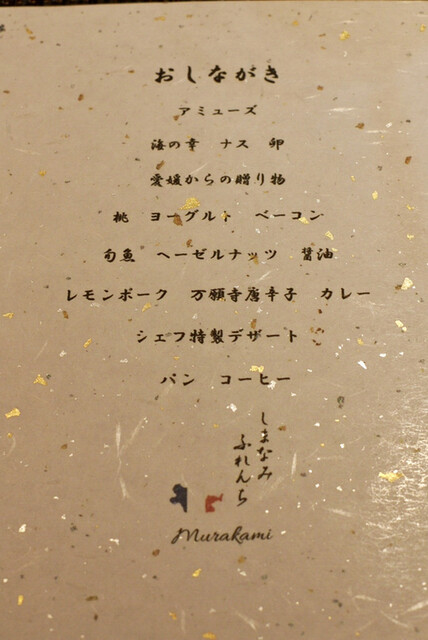 おしながき
アミューズ
海の幸　ナス　卵
愛媛からの贈り物
桃　ヨーグルト　ベーコン
旬魚　ヘーゼルナッツ　醤油
レモンポーク　万願寺唐辛子　カレー
シェフ特製デザート
パン　コーヒー
しまなみ
ふれんち
Murakami